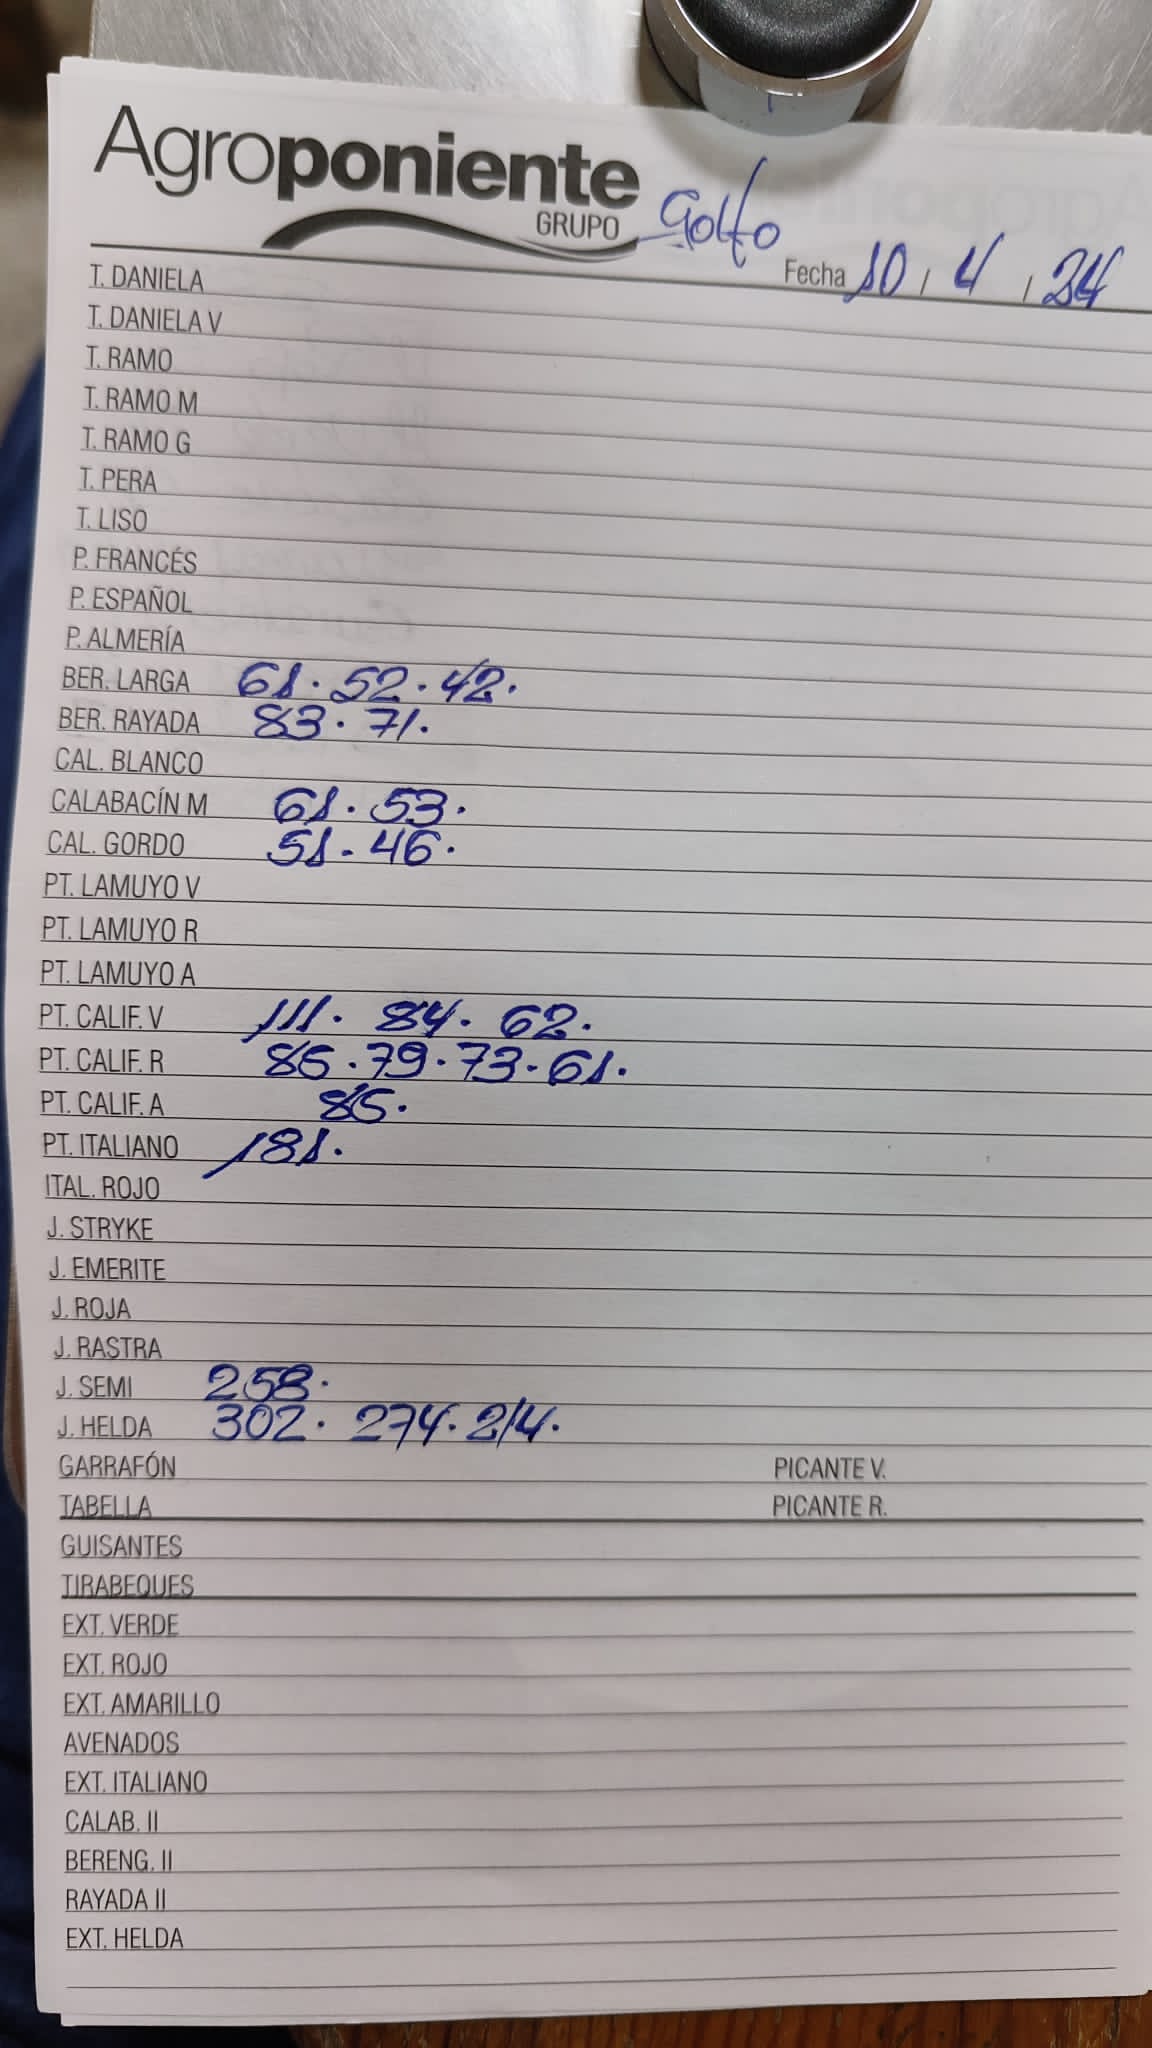 Agroponiente
GRUPO
Golfo
Fecha 10 / 4 / 24
T. DANIELA
T. DANIELA V
T. RAMO
T. RAMO M
T. RAMO G
T. PERA
T. LISO
P. FRANCÉS
P. ESPAÑOL
P. ALMERÍA
BER. LARGA 61. 52. 42.
BER. RAYADA 83. 71.
CAL. BLANCO
CALABACÍN M 61. 53.
CAL. GORDO 51. 46.
PT. LAMUYO V
PT. LAMUYO R
PT. LAMUYO A
PT. CALIF. V 111. 84. 62.
PT. CALIF. R 79. 73. 61.
PT. CALIF. A
PT. ITALIANO 181.
ITAL. ROJO
J. STRYKE
J. EMERITE
J. ROJA
J. RASTRA
J. SEMI 258.
J. HELDA 302. 274. 214.
GARRAFÓN PICANTE V.
TABELLA PICANTE R.
GUISANTES
TIRABEQUES
EXT. VERDE
EXT. ROJO
EXT. AMARILLO
AVENADOS
EXT. ITALIANO
CALAB. II
BERENG. II
RAYADA II
EXT. HELDA